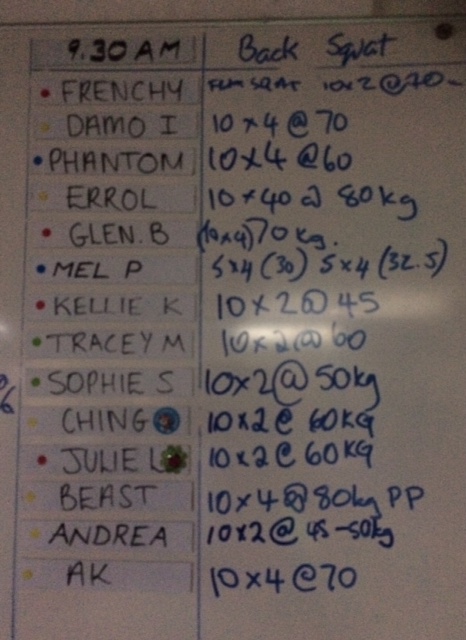 9.30 AM Back Squat
FRENCHY 10x2 @ 70
DAMO I 10x4 @ 70
PHANTOM 10x4 @60
ERROL 10x40 @ 80kg
GLEN.B (10x4) 70 kg.
MEL P 5x4 (30) 5x4 (32.5)
KELLIE K 10x2@ 45
TRACEY M 10x2@ 60
SOPHIE S 10x2@ 50kg
CHING 10x2@ 60KG
JULIE L 10x2@ 60KG
BEAST 10x4 @ 80kg PP
ANDREA 10x2@ 45-50kg
AK 10x4 @70